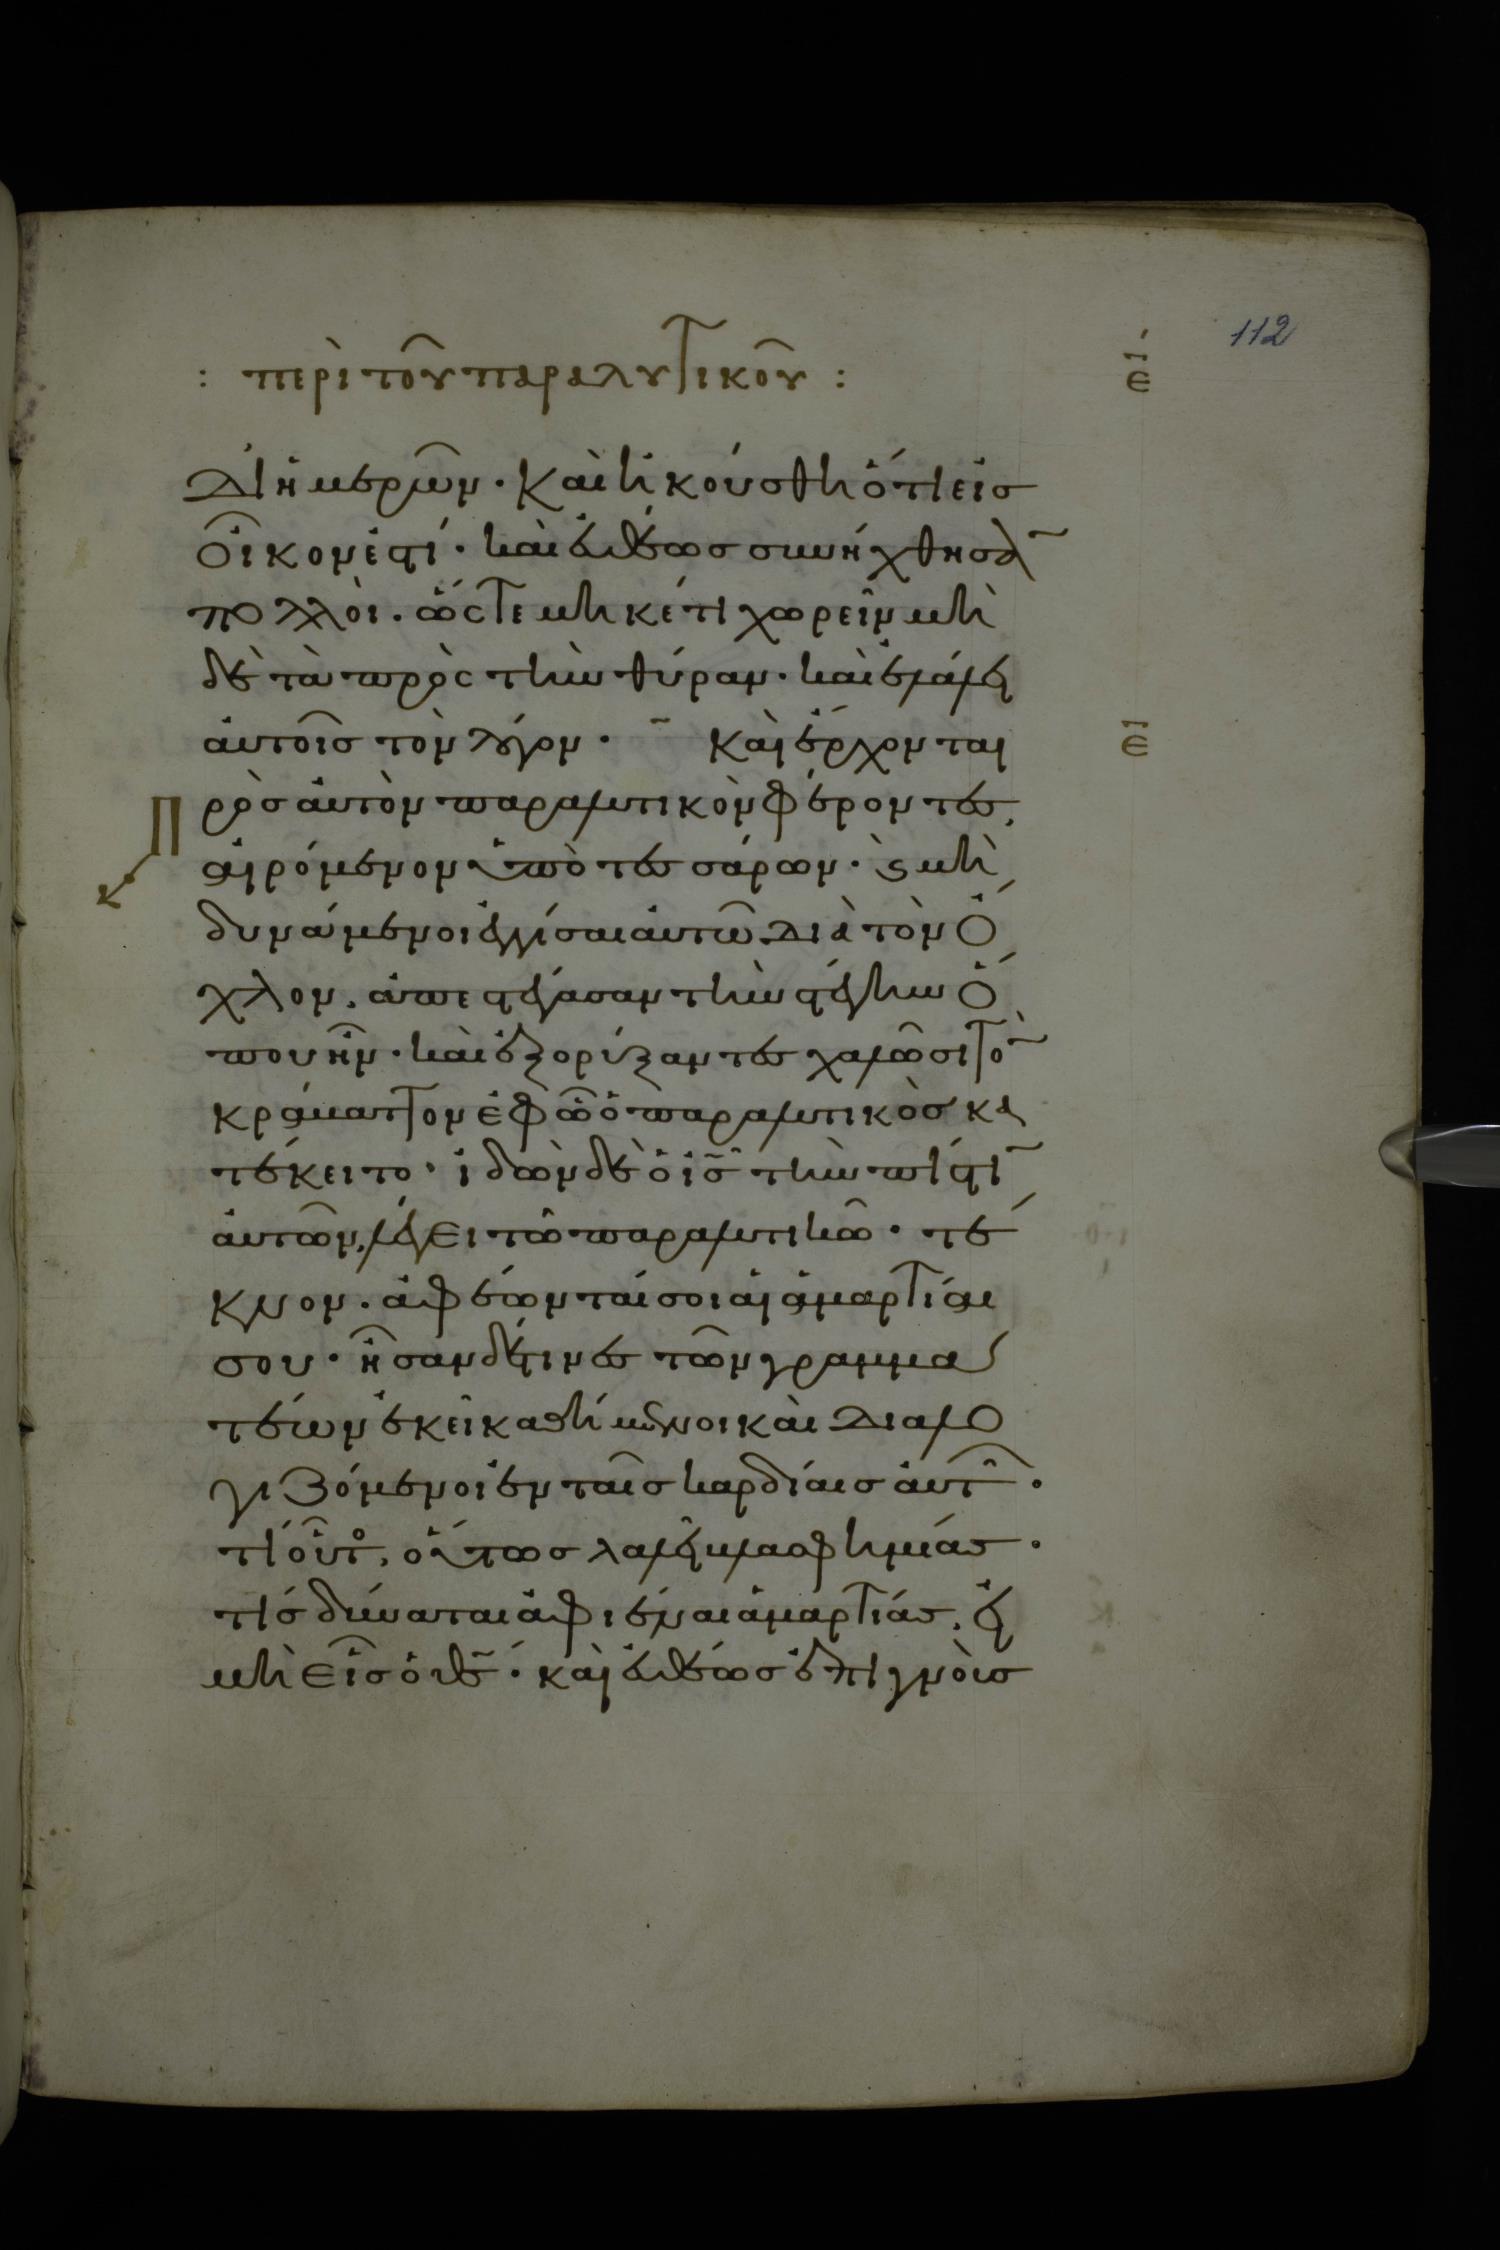 112
: περὶ τοῦ παραλυτικοῦ :
ε
δι ἡμερῶν· Καὶ ἠκούσθη ὅτι εἰσ
οἶκον ἐστί· καὶ ἐυθέωσ συνήχθησᾱ
πολλοὶ. ὥστε μηκέτι χωρεῖν μὴ
δὲ τὰ πρὸς τὴν θύραν· καὶ ἐλάλει
ἀυτοῖσ τὸν λόγον· Καὶ ἔρχονται
ε
Π
ρὸσ ἀυτὸν παραλυτικὸν φέροντεσ,
αἰρόμενον ὑπὸ τεσσάρων· ϗ μὴ
δυνάμενοι ἐγγίσαι ἀυτῶ. διὰ τὸν ὄ
χλον. ἀπεστέγασαν τὴν στέγην ὅ
που ἦν· καὶ ἐξορύξαντεσ χαλῶσι τὸ̄
κράματτον ἐφ ὧ ὁ παραλυτικὸσ κα
τέκειτο· ἰδὼν δὲ ὁ ἰσ̄ τὴν πίστῑ
ἀυτῶν, λέγει τῶ παραλυτικῶ· τέ
κνον. ἀφέωνταί σοι αἱ ἁμαρτίαι
σου· ἦσαν δέ τινεσ τῶν γραμμα
τέων ἐκεῖ καθήμενοι καὶ διαλο
γιζόμενοι ἐν ταῖσ καρδίαισ ἀυτ̑·
τί οὗτ̊, οὕτωσ λαλεῖ βλασφημίασ·
τίσ δύναται ἀφιέναι ἁμαρτίασ, εἰ
μὴ εἷσ ὁ θσ̄· καὶ ἐυθέωσ ἐπιγνοὺσ